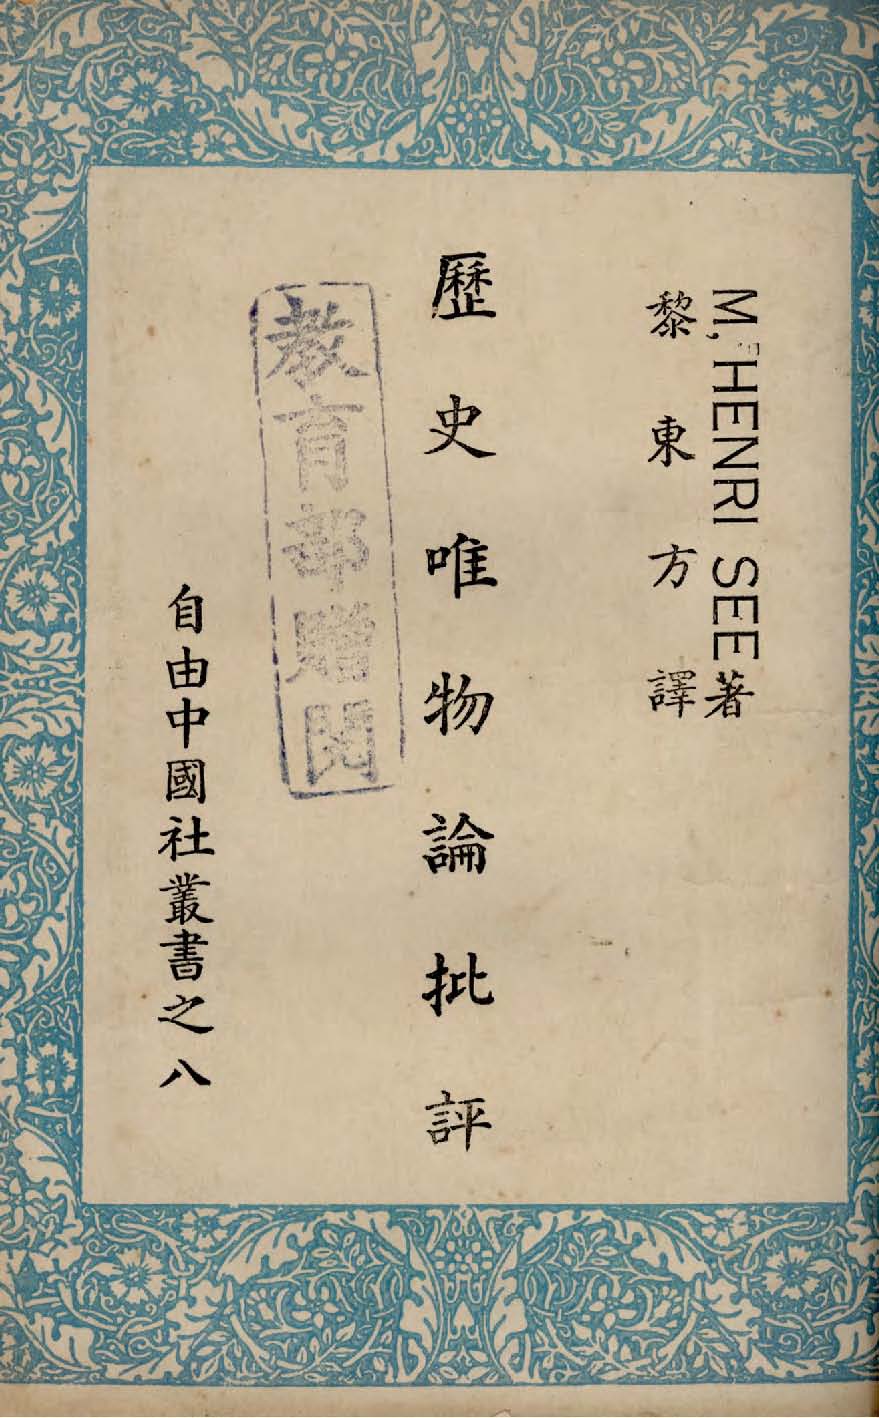 M, HENRI SEE著
黎東方譯
歷史唯物論批評
教育部贈閱
自由中國社叢書之八